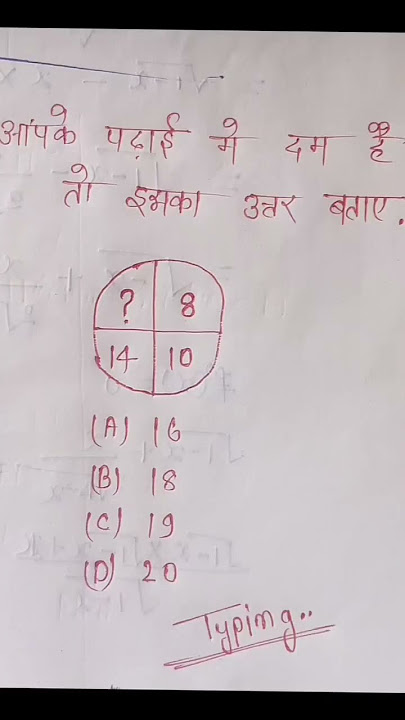 आपके पढ़ाई मे दम है
तो इसका उत्तर बताए.
? 8
14 10
(A) 16
(B) 18
(C) 19
(D) 20
Typing..